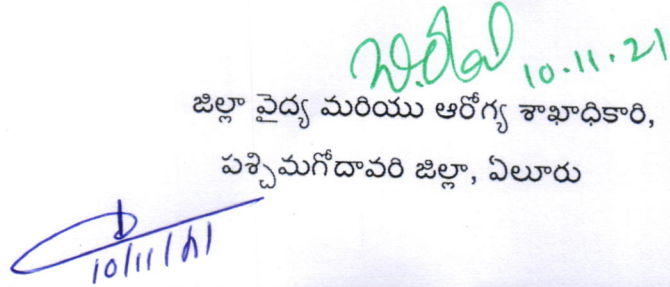 10.11.21
జిల్లా వైద్య మరియు ఆరోగ్య శాఖాధికారి,
పశ్చిమగోదావరి జిల్లా, ఏలూరు
10/11/21